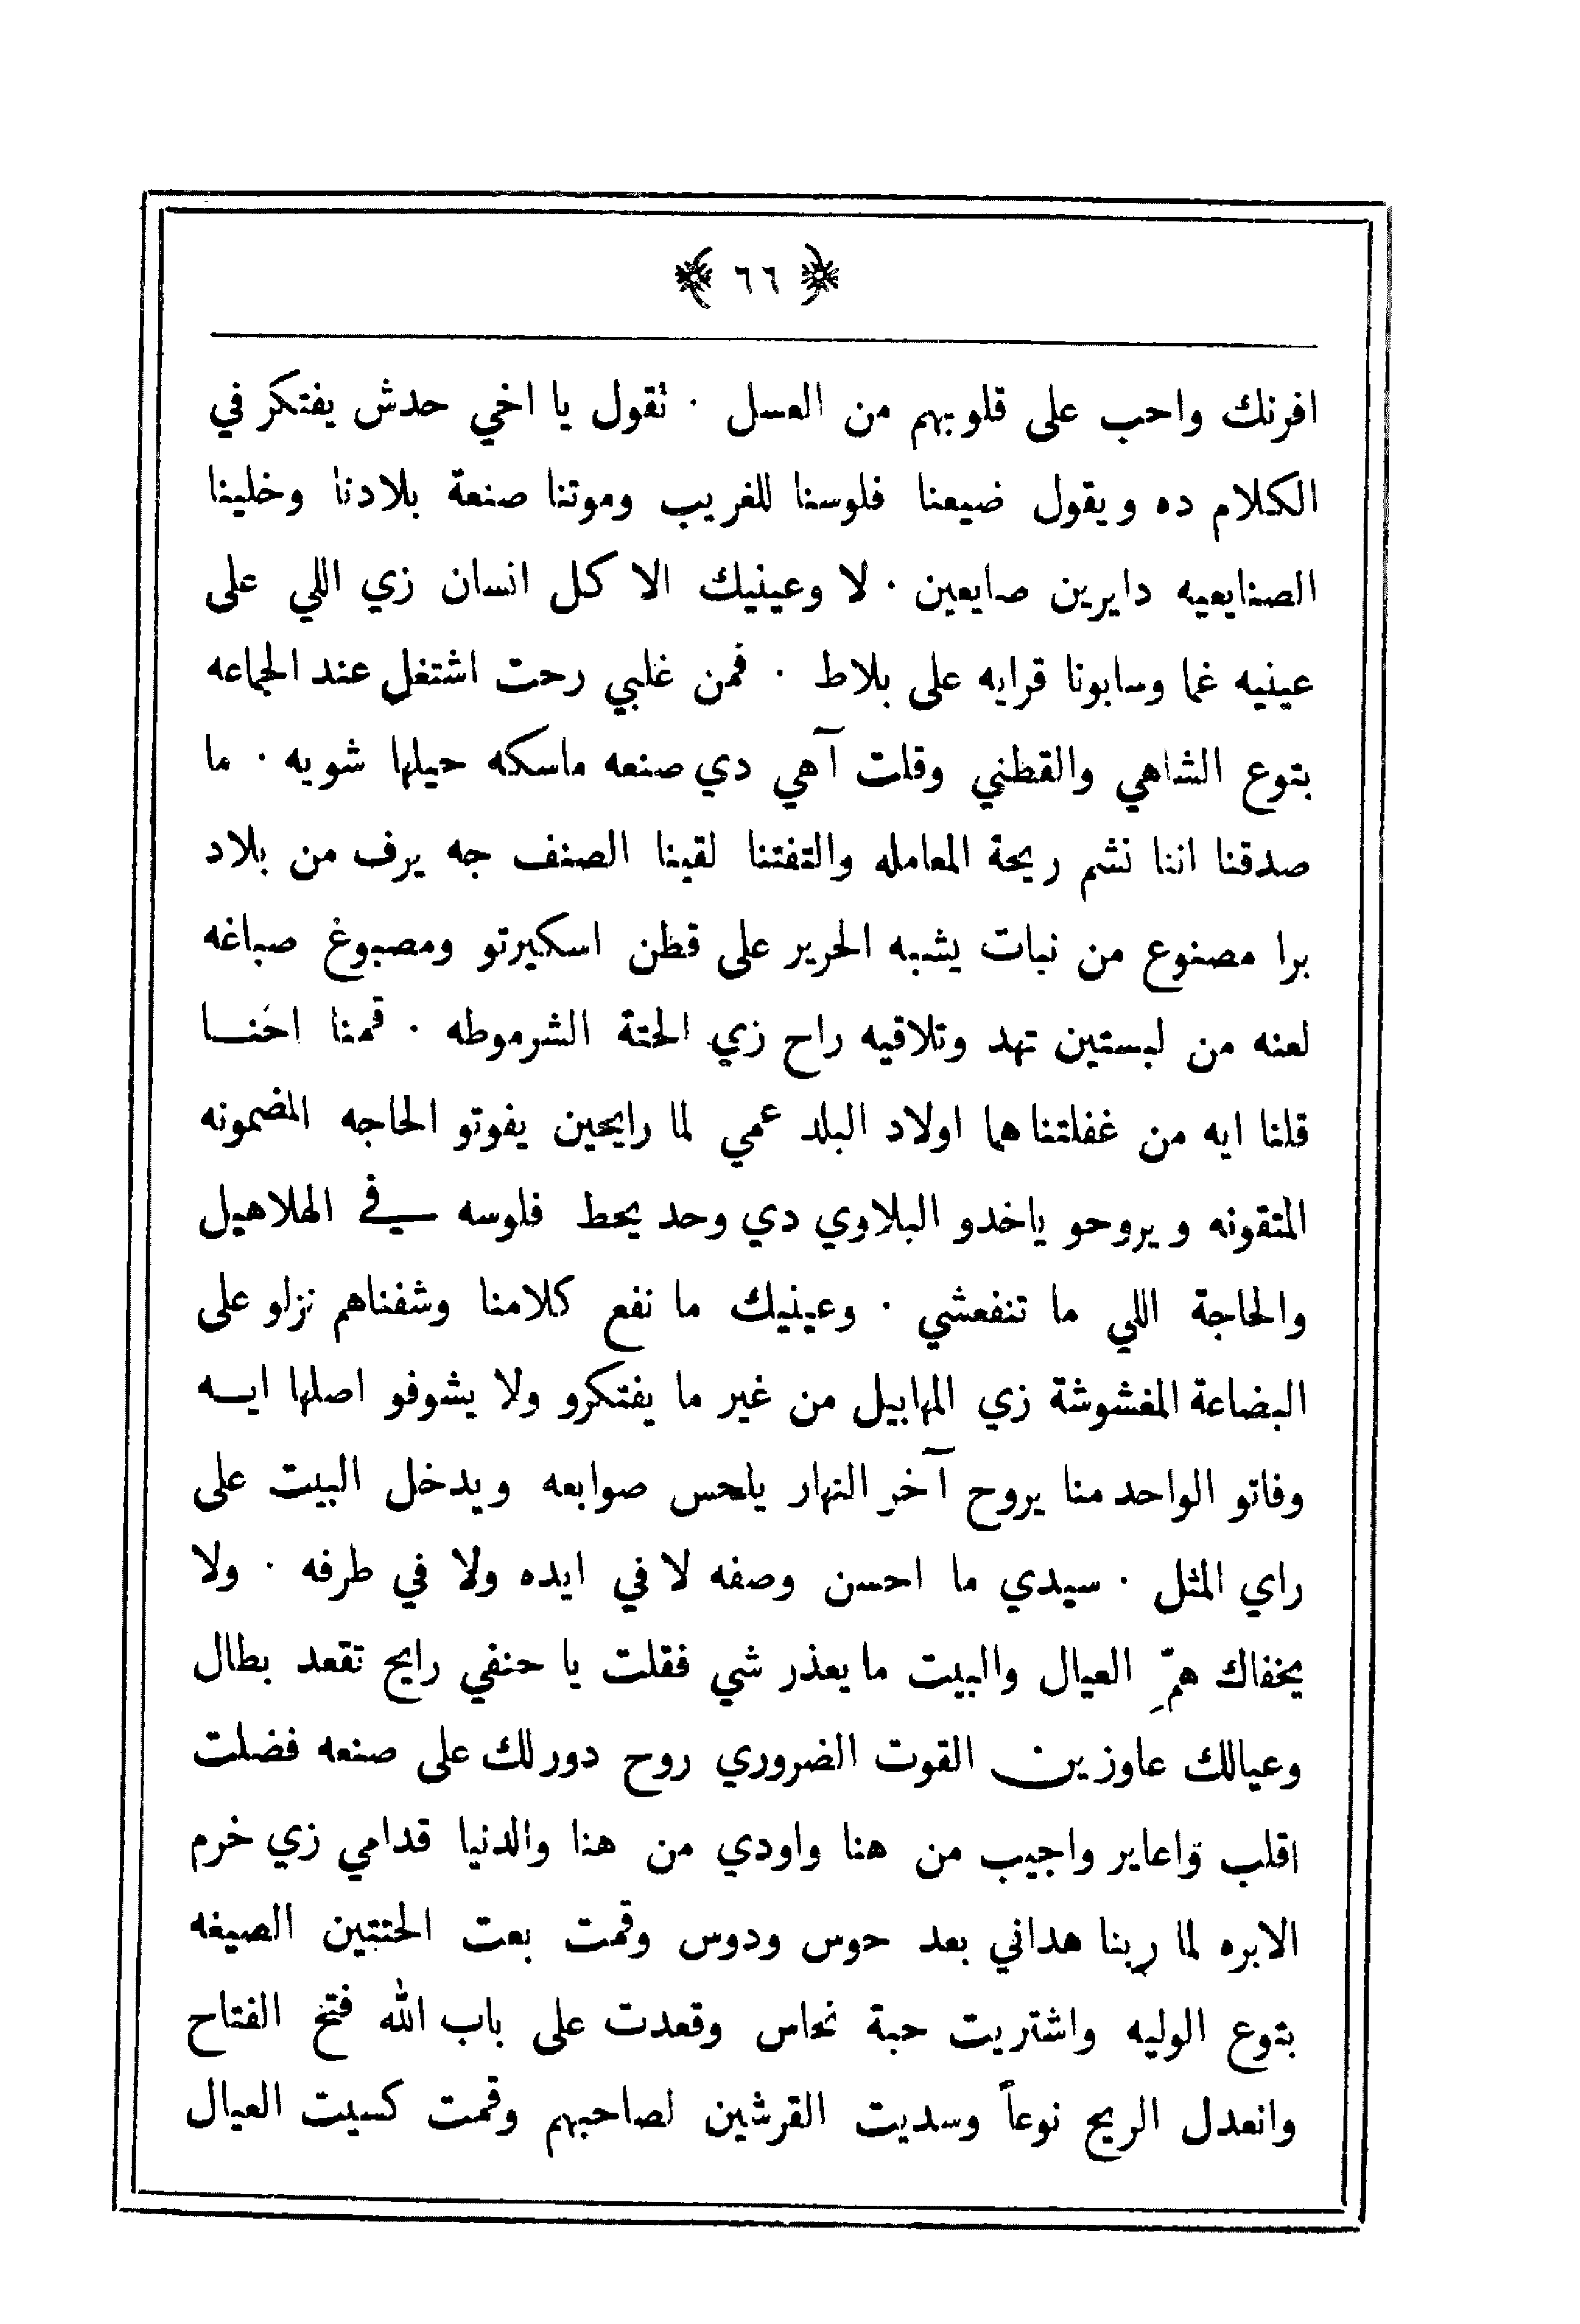 ﴿ ٦٦ ﴾
افرنك واحب على قلوبهم من العسل · نقول يا اخي حدش يفتكر في
الكلام ده ويقول ضيعنا فلوسنا للغريب وموتنا صنعة بلادنا وخلينا
الصنايعيه دايرين صايعين · لا وعينيك الا كل انسان زي اللي على
عينيه غما وسابونا قرايه على بلاط · فمن غلبي رحت اشتغل عند الجماعه
بتوع الشاهي والقطني وقلت آهي دي صنعه ماسكه حيلها شويه · ما
صدقنا اننا نشم ريحة المعامله والتفتنا لقينا الصنف جه يرف من بلاد
برا مصنوع من نبات يشبه الحرير على قطن اسكيرتو ومصبوغ صباغه
لعنه من لبستين تهد وتلاقيه راح زي الحتة الشرموطه · قمنا احنا
قلنا ايه من غفلتنا هما اولاد البلد عمي لما رايحين يفوتو الحاجه المضمونه
المتقونه ويروحو ياخدو البلاوي دي وحد يحط فلوسه في الهلاهيل
والحاجة اللي ما تنفعشي · وعينيك ما نفع كلامنا وشفناهم نزلو على
البضاعة المغشوشة زي المهابيل من غير ما يفتكرو ولا يشوفو اصلها ايه
وفاتو الواحد منا يروح آخر النهار يلحس صوابعه ويدخل البيت على
راي المثل · سيدي ما احسن وصفه لا في ايده ولا في طرفه · ولا
يخفاك همِّ العيال والبيت ما يعذر شي فقلت يا حنفي رايح تقعد بطال
وعيالك عاوزين القوت الضروري روح دور لك على صنعه فضلت
اقلب واعاير واجيب من هنا واودي من هنا والدنيا قدامي زي خرم
الابره لما ربنا هداني بعد حوس ودوس وقمت بعت الحتتين الصيغه
بتوع الوليه واشتريت حبة نحاس وقعدت على باب الله فتح الفتاح
وانعدل الريح نوعاً وسديت القرشين لصاحبهم وقمت كسيت العيال